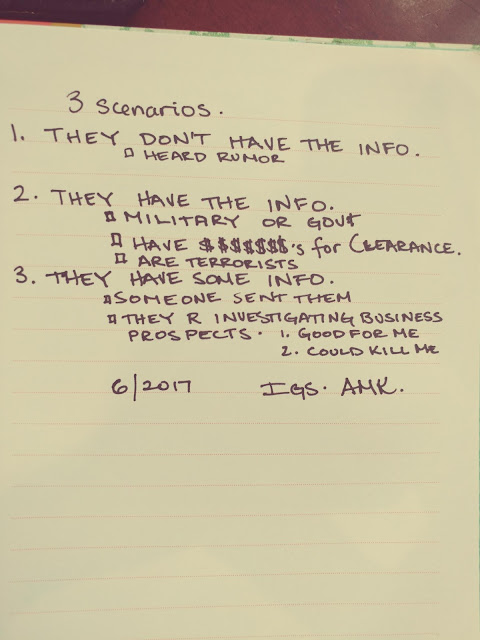 3 scenarios.
1. THEY DON'T HAVE THE INFO.
□ HEARD RUMOR
2. THEY HAVE THE INFO.
□ MILITARY OR GOV$
□ HAVE $$$$$$$'s for CLEARANCE.
□ ARE TERRORISTS
3. THEY HAVE SOME INFO.
□ SOMEONE SENT THEM
□ THEY R INVESTIGATING BUSINESS
PROSPECTS. 1. GOOD FOR ME
2. COULD KILL ME
6/2017 IGS. AMK.